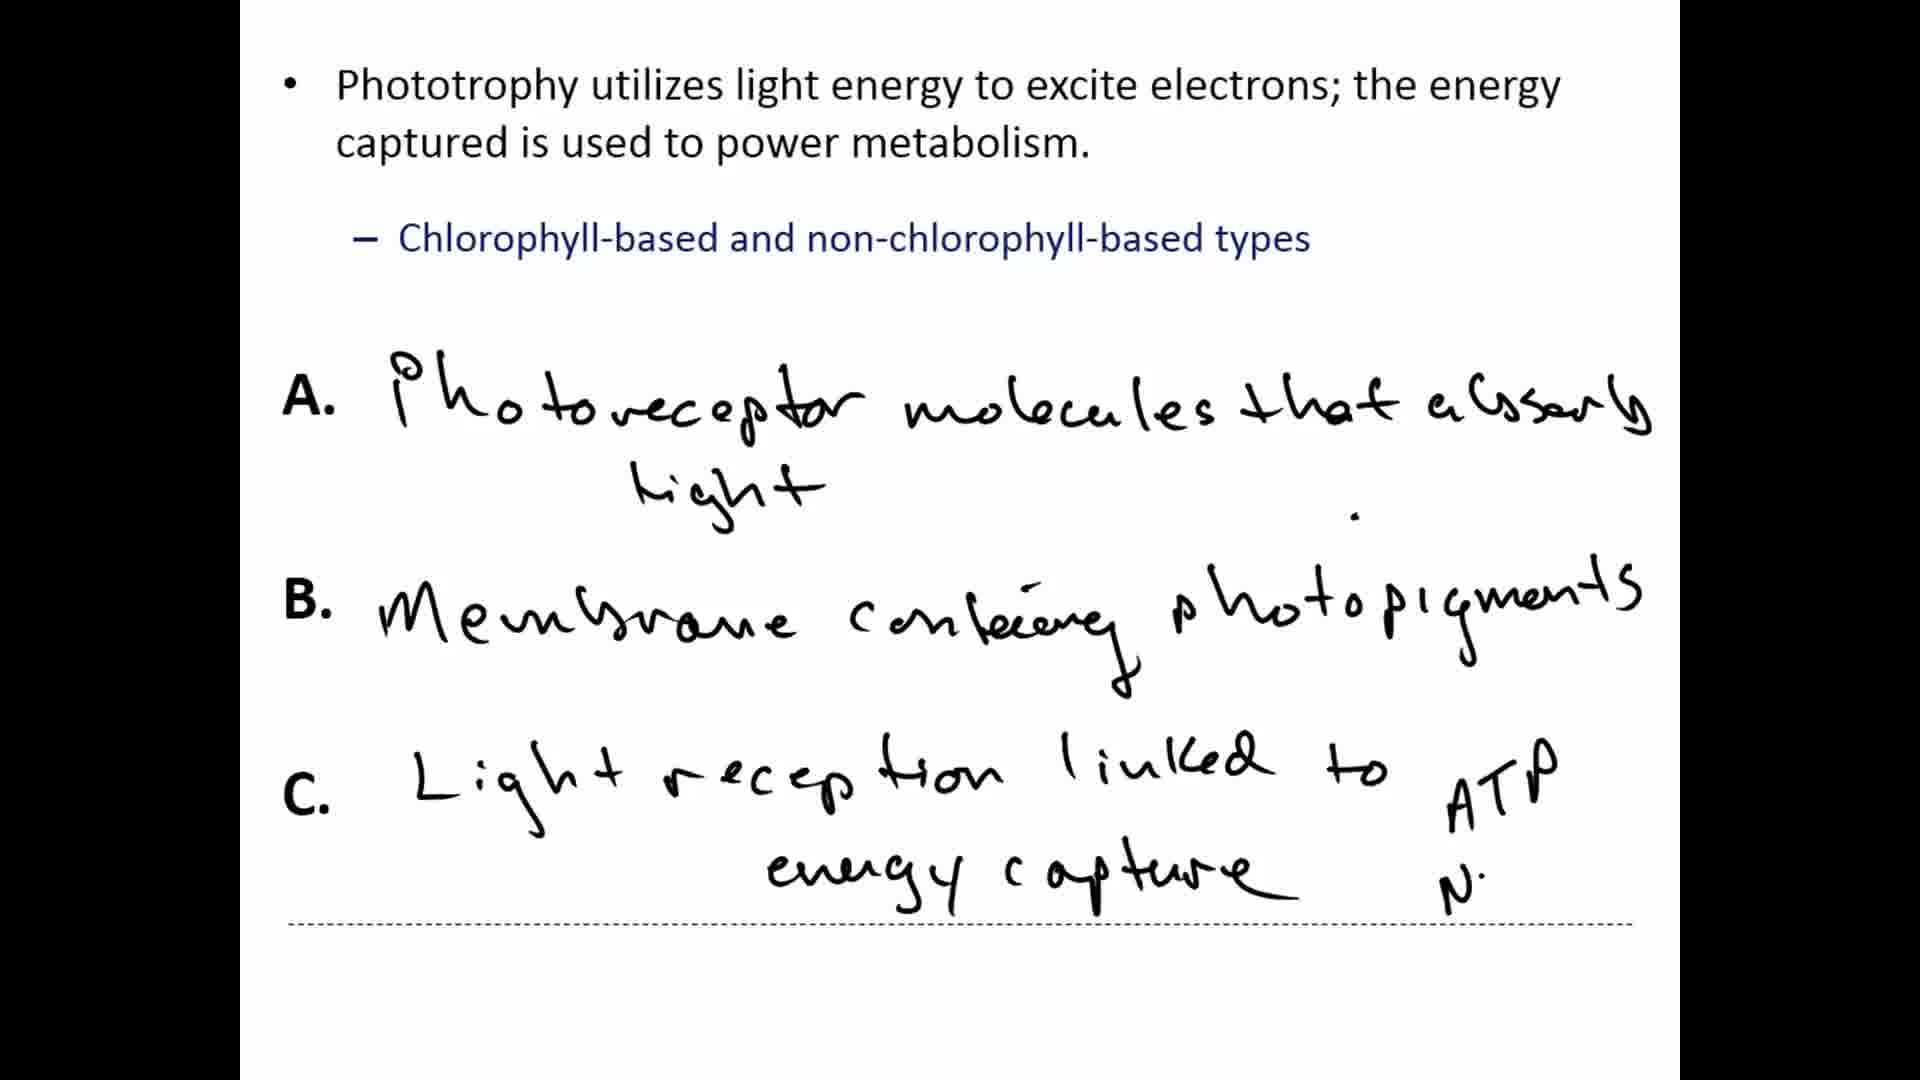 • Phototrophy utilizes light energy to excite electrons; the energy
captured is used to power metabolism.
– Chlorophyll-based and non-chlorophyll-based types
A. Photoreceptor molecules that absorb
light
B. Membrane containing photopigments
C. Light reception linked to ATP
energy capture N